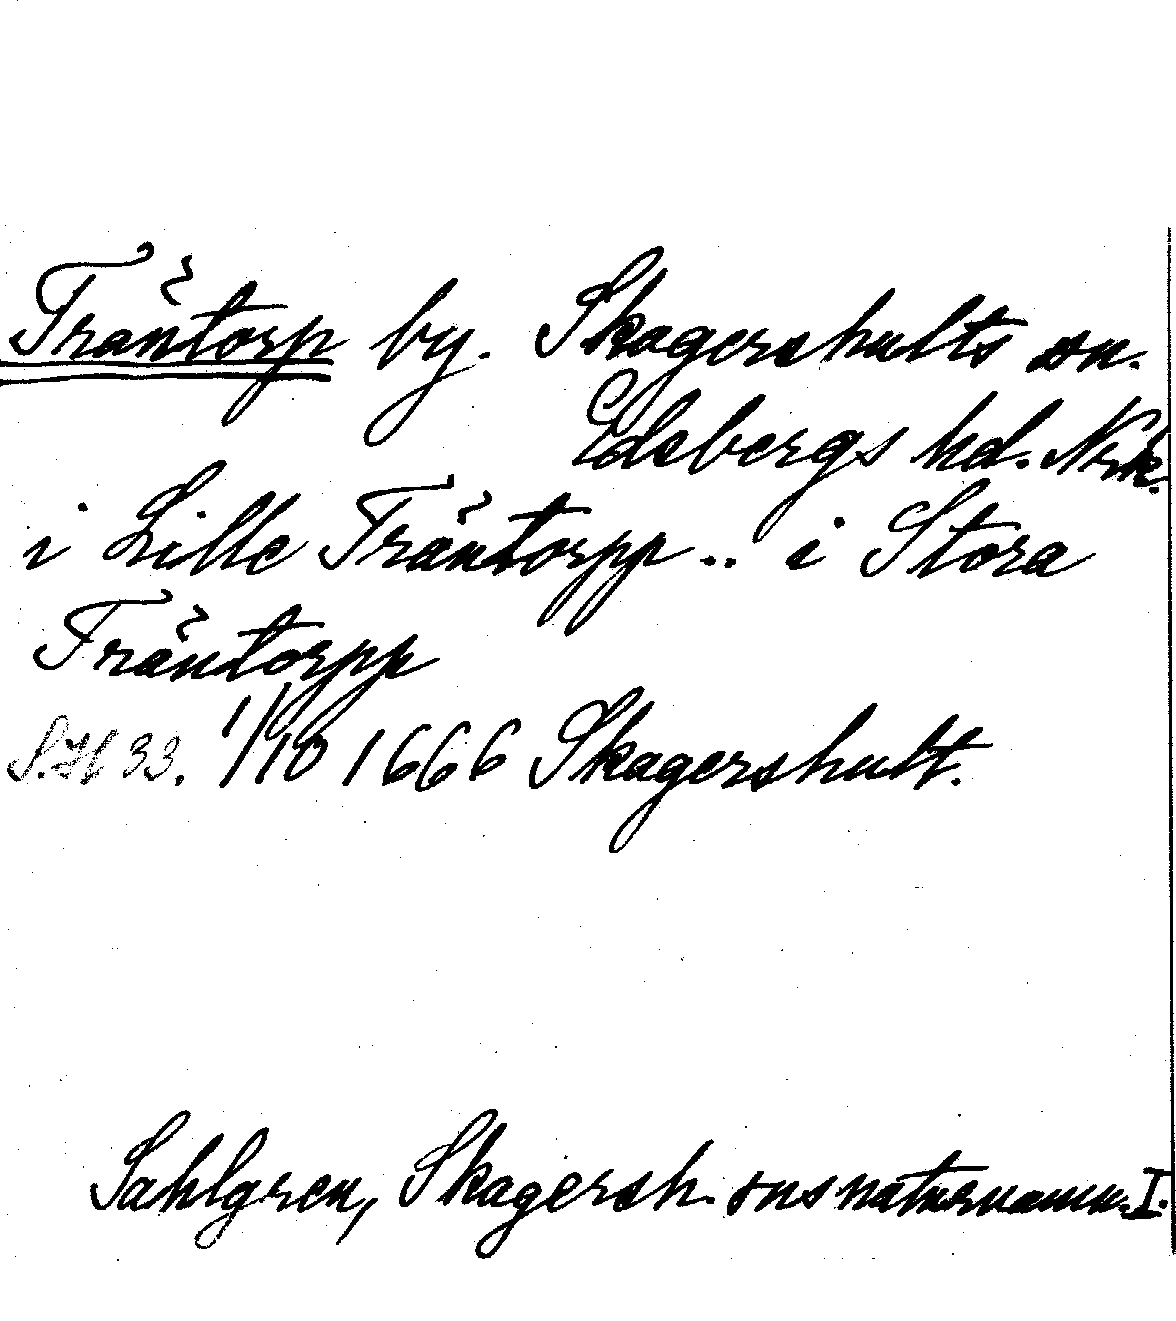 Träntorp by. Skagershults sn.
Edsbergs hd. Nrk.
i Lille Träntorpp .. i Stora
Träntorpp
S.H 33. 1/10 1666 Skagershult.
Sahlgren, Skagersh. sns naturnamn. I.